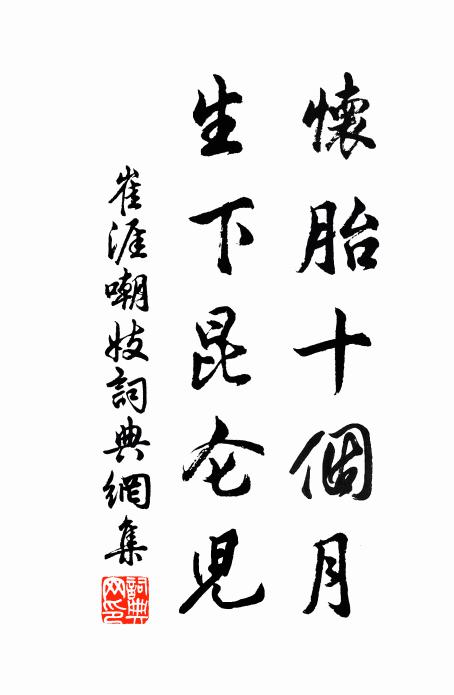 懷胎十個月
生下昆仑兒
崔涯嘲妓詞典網集
詞典
网印